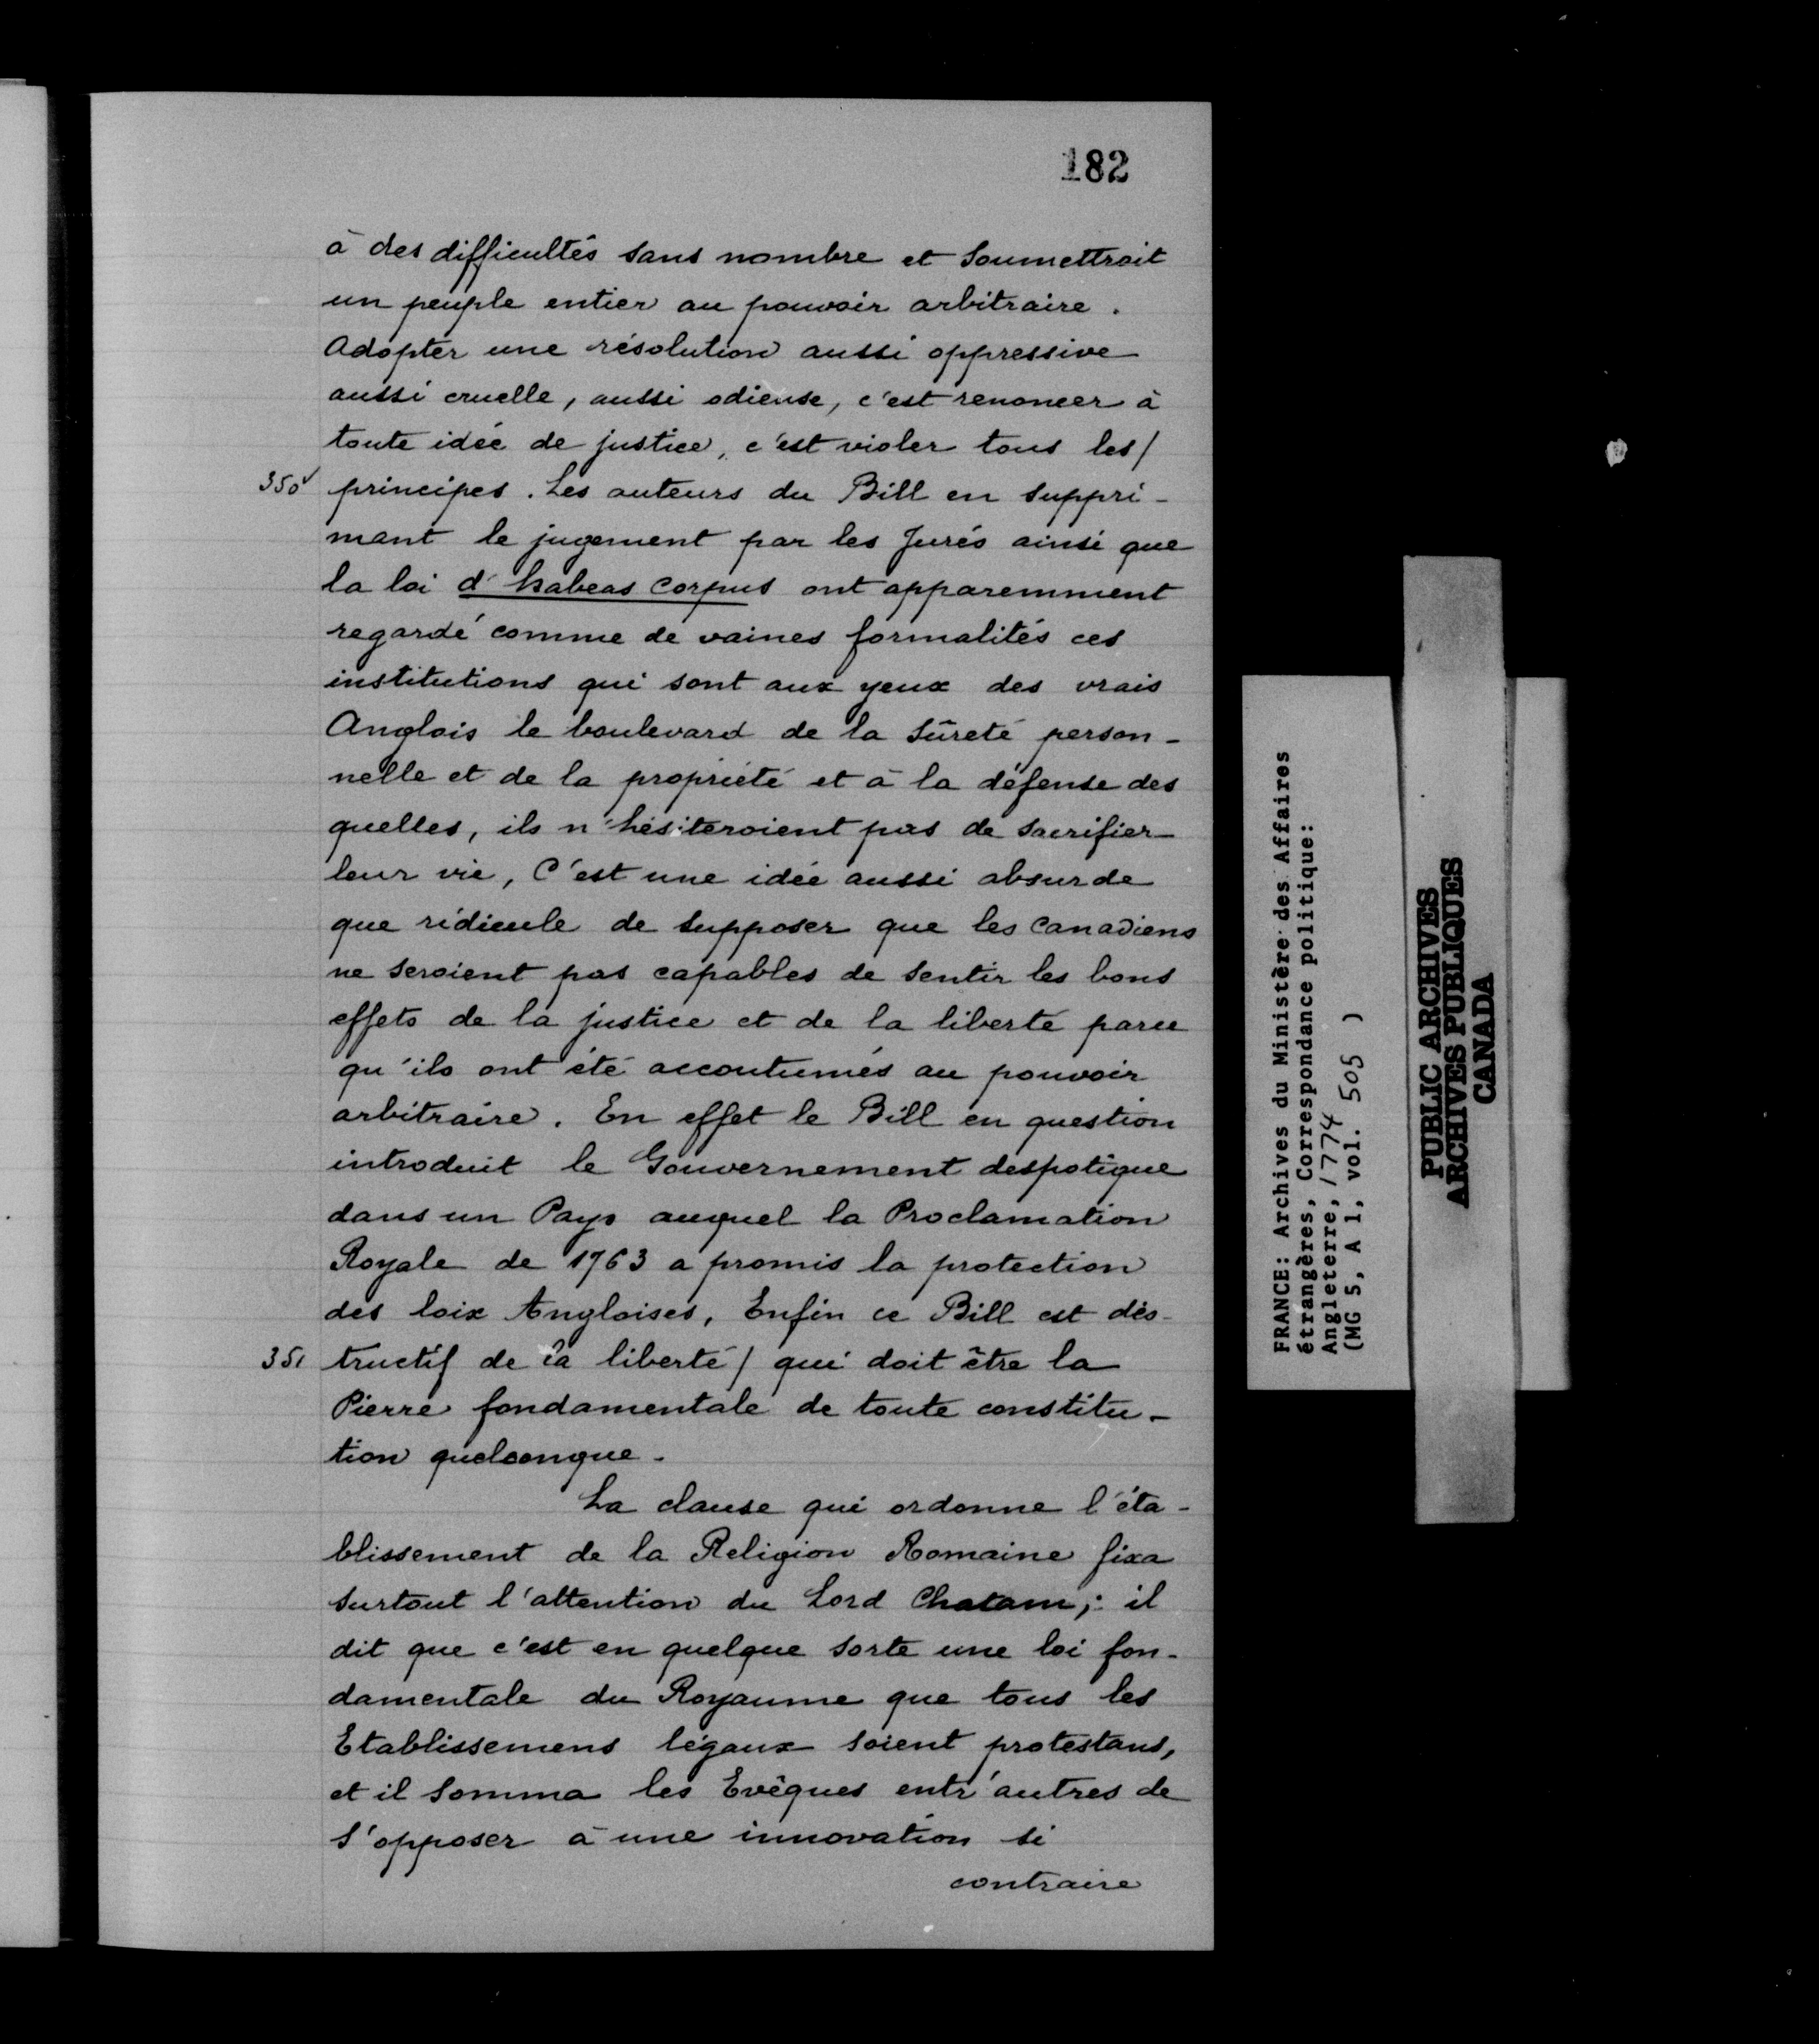 182
à des difficultés sans nombre et soumettroit
un peuple entier au pouvoir arbitraire.
Adopter une résolution aussi oppressive
aussi cruelle, aussi odieuse, c'est renoncer à
toute idée de justice, c'est violer tous les/
350v principes. Les auteurs du Bill en suppri-
mant le jugement par les Jurés ainsi que
la loi d'habeas corpus ont apparemment
regardé comme de vaines formalités ces
institutions qui sont aux yeux des vrais
Anglois le boulevard de la sûreté person-
nelle et de la propriété et à la défense des
quelles, ils n'hésiteroient pas de sacrifier
leur vie, C'est une idée aussi absurde
que ridicule de supposer que les Canadiens
ne seroient pas capables de sentir les bons
effets de la justice et de la liberté parce
qu'ils ont été accoutumés au pouvoir
arbitraire. En effet le Bill en question
introduit le Gouvernement despotique
dans un Pays auquel la Proclamation
Royale de 1763 a promis la protection
des loix Angloises, Enfin ce Bill est dés-
351 tructif de la liberté/ qui doit être la
Pierre fondamentale de toute constitu-
tion quelconque.
La clause qui ordonne l'éta-
blissement de la Religion Romaine fixa
surtout l'attention du Lord Chatam; il
dit que c'est en quelque sorte une loi fon-
damentale du Royaume que tous les
Etablissemens légaux soient protestans,
et il somma les Evêques entr'autres de
s'opposer à une innovation si
contraire
FRANCE: Archives du Ministère des Affaires
étrangères, Correspondance politique:
Angleterre, 1774
(MG 5, A 1, vol. 505 )
PUBLIC ARCHIVES
ARCHIVES PUBLIQUES
CANADA